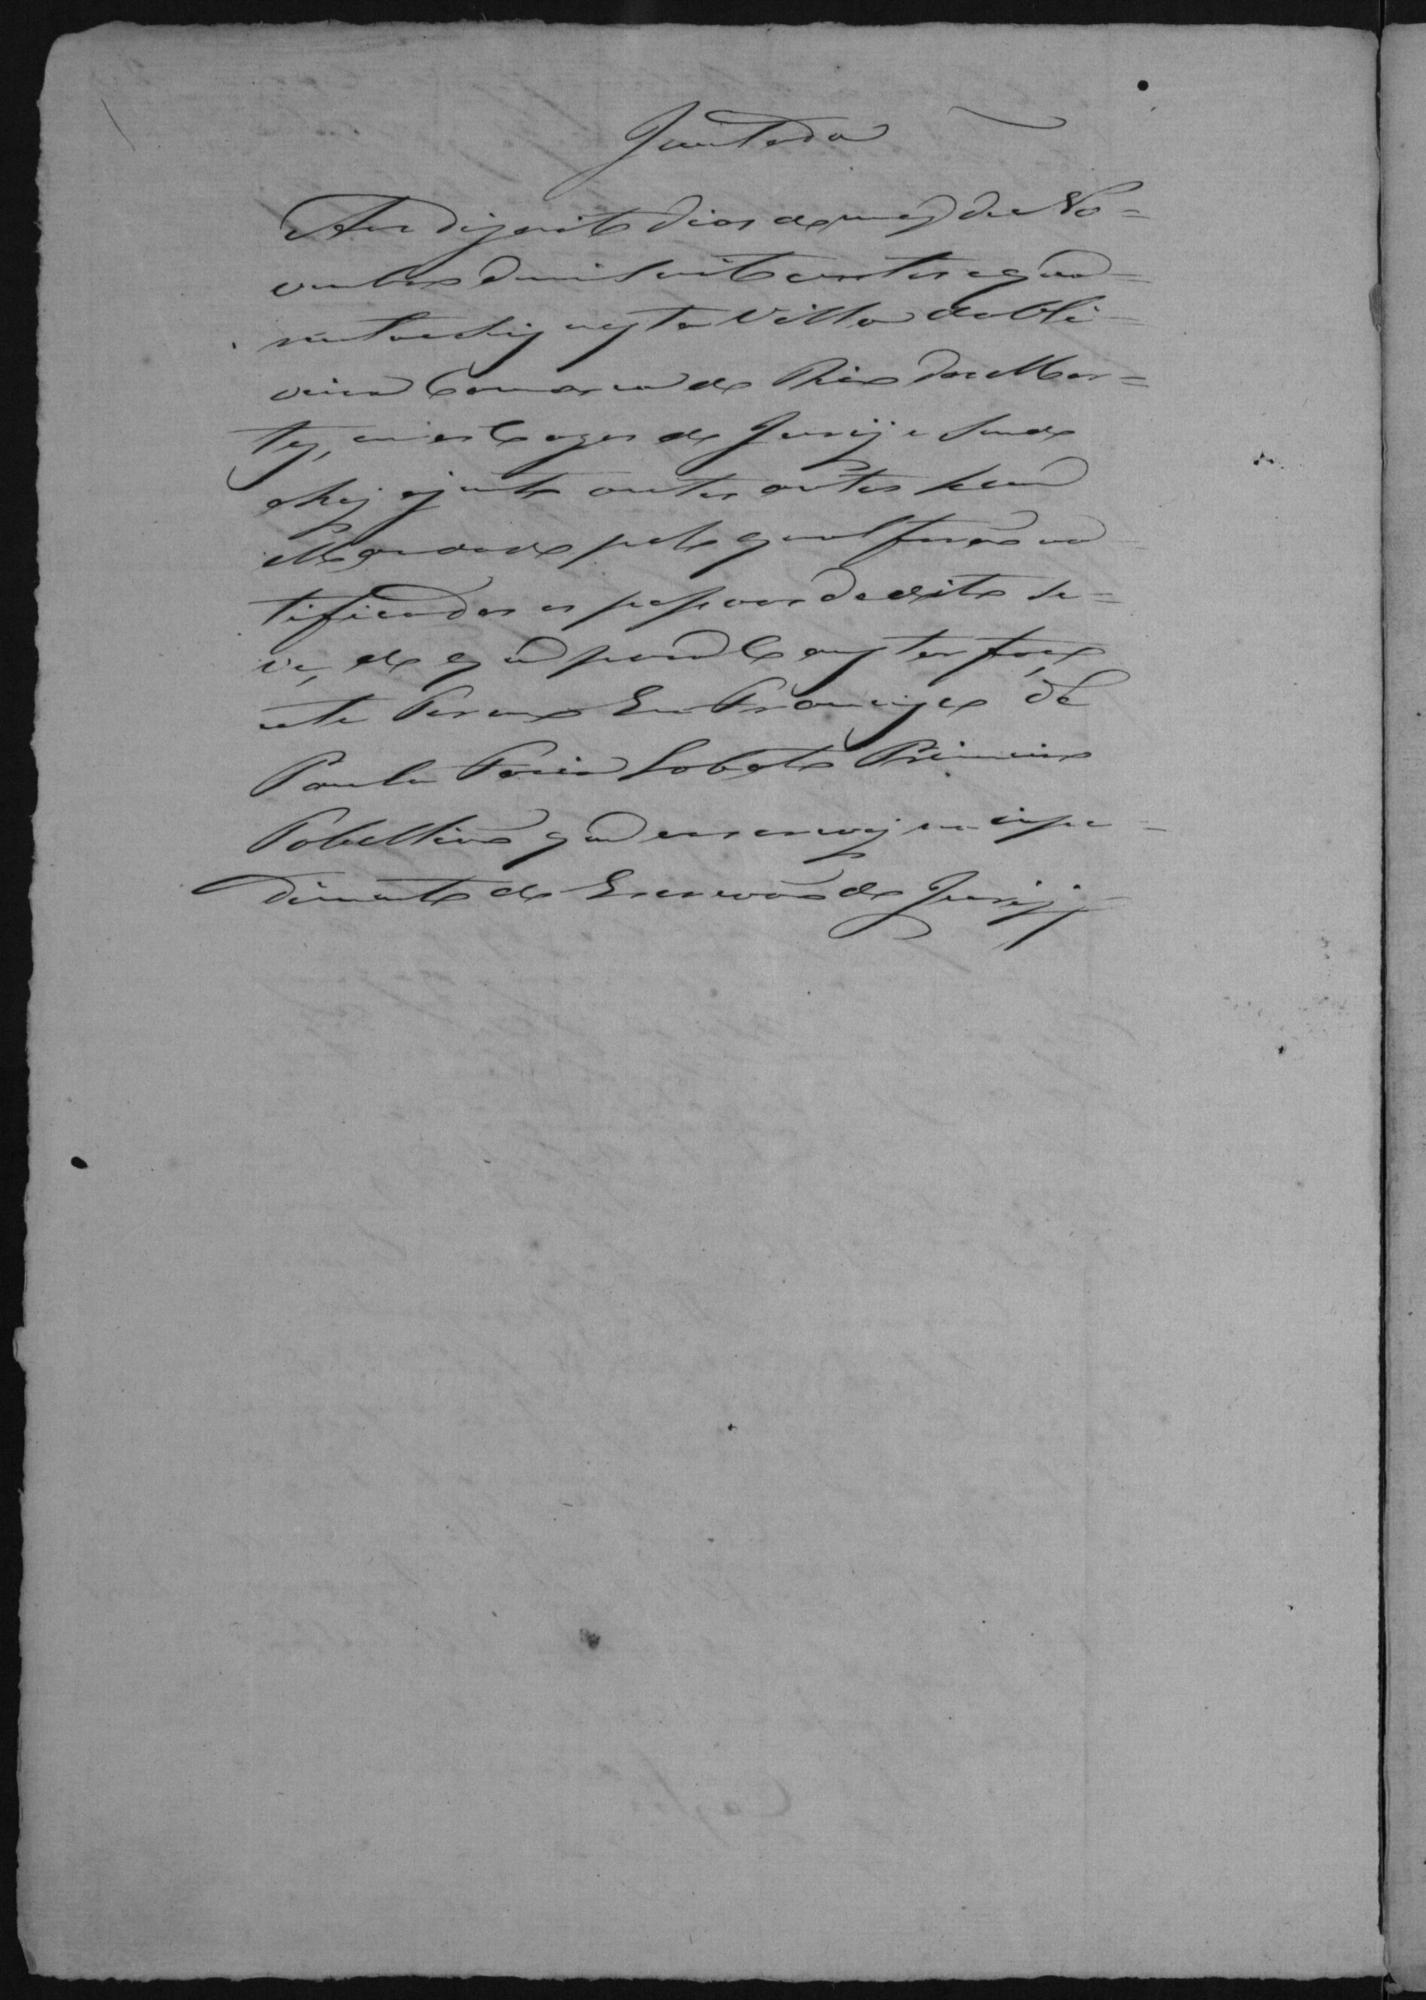 Juntada
Aos dezoito dias do mez de No=
vembro de mil oito centos e qua=
renta e seis nesta Villa de Oli=
veira Comarca do Rio das Mor=
tes, em o Cazas do Juiz e sendo
ahy ajunto a estes autos hum
Mandado pelo qual forão no
tificadas as pessoas do dito su=
de que para constar faço
este termo Eu Francisco de
Paula Faria Lobato Primeiro
Tabellião que escrevy no impe=
dimento do Escrivão de Juiz